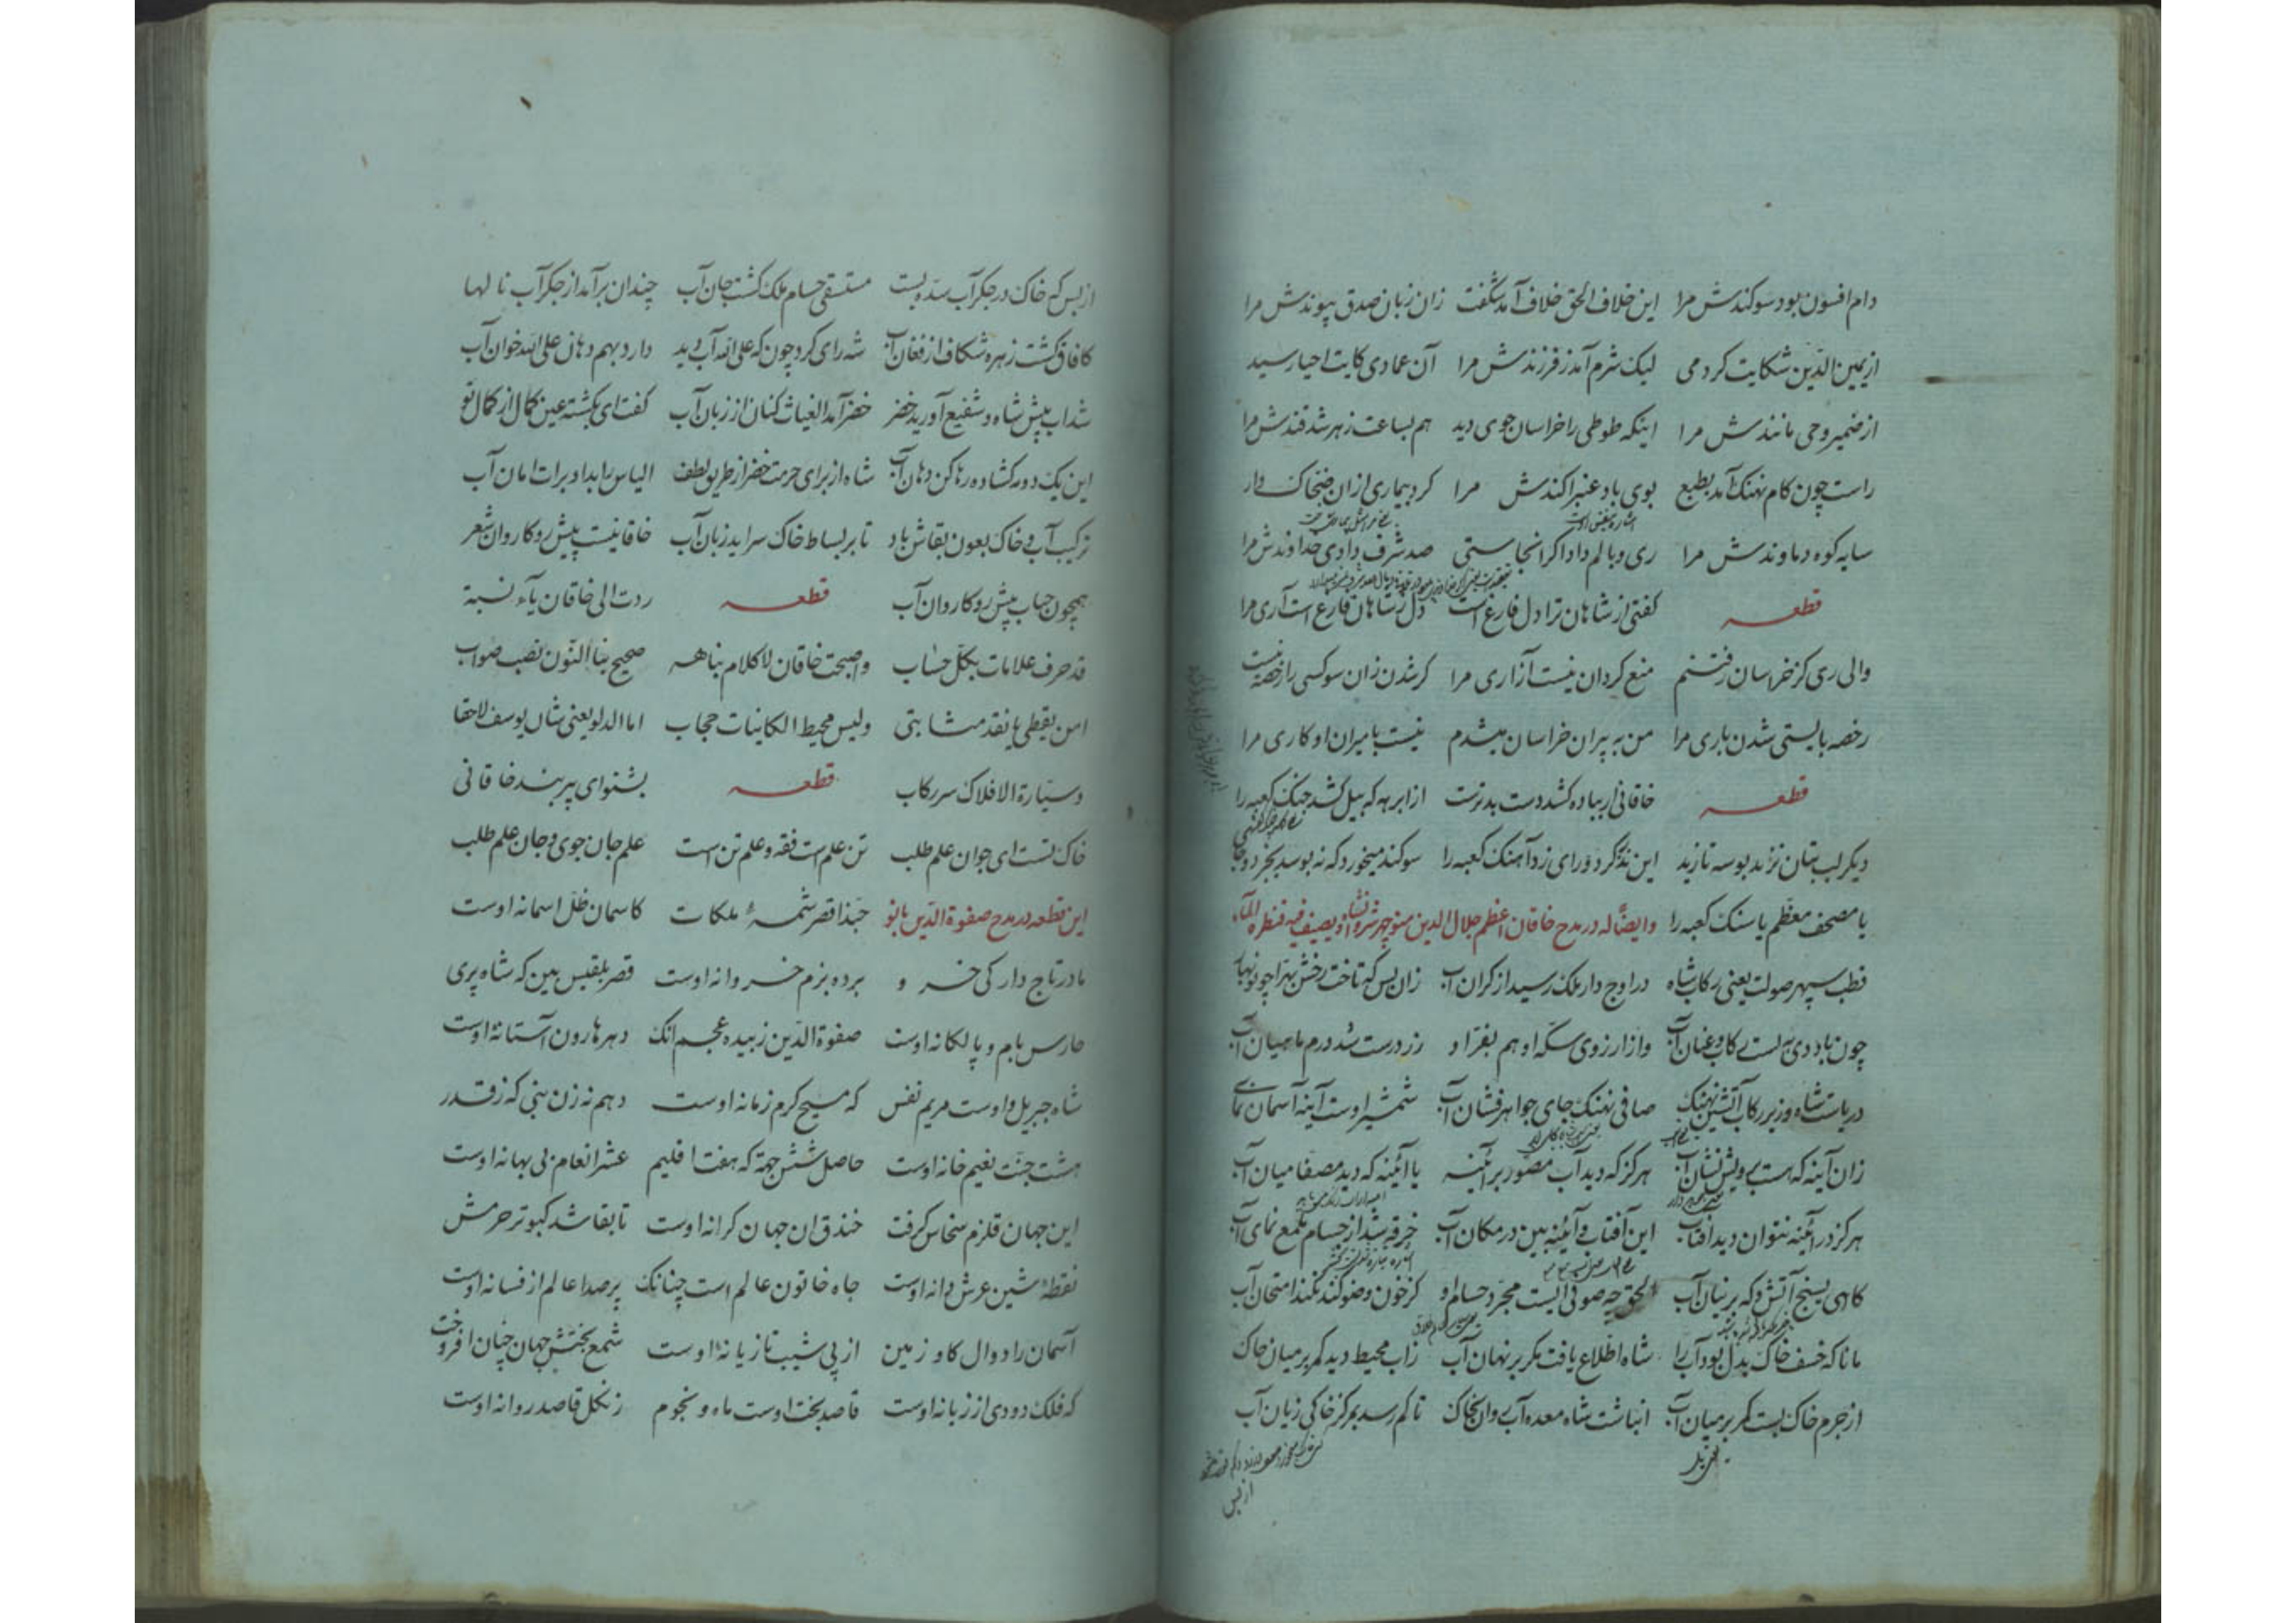 دام افسون بود سوکندش مرا این خلاف الحق خلاف آمد شکفت زان زبان صدق پیوندش مرا
از یمین الدین شکایت کردمی لیک شرم آمد ز فرزندش مرا آن عمادی کایت احیا رسید
از ضمیر وحی مانندش مرا اینکه طوطی را خراسان جوی دید هم بساعت زهر شد قندش مرا
راست چون کام نهنک آمد بطبع بوی باد عنبر اکندش مرا کرد بیماری ازان ضحاک وار
سایه کوه دماوندش مرا ری وبالم داد اکر انجا ستی صد شرف دادی خداوندش مرا
قطعه کفتی از شاهان ترا دل فارغ است دل ز شاهان فارغ است آری مرا
والی ری کز خراسان رفتنم منع کرد ان نیست آزاری مرا کر شدن زان سو کسی را رخصه نیست
رخصه بایستی شدن باری مرا من به پیران خراسان میشدم نیست با میران او کاری مرا
قطعه خاقانی ار بباده کشد دست بدترست از ابرهه که پیل کشد جنک کعبه را
دیکر لب بتان نزند بوسه تا زید این نذر کرد و رای زد آهنک کعبه را سوکند میخورد که نبوسد بجز دو جا
یا مصحف معظم یا سنک کعبه را وایضاً له در مدح خاقان اعظم جلال الدین منوچهر شروانشاه و یصیف فیه قنطرة الماء
قطب سپهر صولت یعنی رکاب شاه در اوج دار ملک رسید از کران آب زان پس که تاخت رخش بهرا چو نوبهار
چون باد دی به بست رکاب و عنان آب واز ارزوی سکه او هم بفر او زر درست شد درم ماهیان آب
دریاست شاه و زیر رکاب آتشین نهنک صافی نهنک جای جواهر فشان آب شمشیر اوست آینه آسمان نمای
زان آینه که هست برویش نشان آب هرکز که دید آب مصور بر آئینه یا آئینه که دید مصفا میان آب
هرکز در آئینه نتوان دید آفتاب این آفتاب و آئینه بین در مکان آب خرقه شد از حسام ملمع نمای آب
کاهی بسنج آتش و که بر نیان آب الحق چه صوفی ایست مجرد حسام او کز خون وضو کند نکند امتحان آب
مانا که خسف خاک بدل بود آب را شاه اطلاع یافت مکر بر نهان آب زاب محیط دید کمر بر میان خاک
از جرم خاک بست کمر بر میان آب انباشت شاه معده آب روان بخاک تا کم رسد بمرکز خاکی زیان آب
از بس
از بس که خاک در جکر آب سده بست مستسقی حسام ملک کشت جان آب چندان برآمد از جکر آب نالها
کافاق کشت زهره شکاف از فغان آب شه رای کرد چون که علی الله آب دید دارد بهم دهان علی الله خوان آب
شد اب پیش شاه و شفیع آورید خضر خضر آمد الغیاث کنان از زبان آب کفت ای بکشته عین کمال از کمال تو
این یک دوره کشاده رها کن دهان آب شاه از برای حرمت خضر از طریق لطف الیاس را بداد برات امان آب
ترکیب آب و خاک بعون بقاش باد تا بر بساط خاک سراید زبان آب خاقانیست پیش رو کاروان شعر
همچون حباب پیش رو کاروان آب قطعه ردت الی خاقان یآء نسبة
قد حرف علامات بکل حساب واصبحت خاقان لا کلام بناهه صحیح بنا النون نصب صواب
امن یقطی یا نقد مشا بتی ولیس محیط الکاینات حجاب اما الدلو یعنی شان یوسف لاحقا
وسیّارة الافلاک سر رکاب قطعه بشنو ای پیر پند خاقانی
خاک تست ای جوان علم طلب تن علمست فقه و علم تن است علم جان جوی و جان علم طلب
این قطعه در مدح صفوة الدین بانو حبذا قصر شمسهٔ ملکات کاسمان ظل اسمانه اوست
مادر تاج دار کی خسرو برده بزم خسروانه اوست قصر بلقیس بین که شاه پری
حارس بام و پالکانه اوست صفوة الدین زبیده عجم انک دهر هارون آستانهٔ اوست
شاه جبریل و اوست مریم نفس که مسیح کرم زمانه اوست دهم نه زن نبی که ز قدر
هشت جنت نعیم خانه اوست حاصل شش جهة که هفت اقلیم عشر انعام بی بهانه اوست
این جهان قلزم سخاس کرفت خندق ان جهان کرانه اوست تا بقا شد کبوتر حرمش
نقطهٔ شین عرش دانه اوست جاه خاتون عالم است چنانک پر صدا عالم از فسانه اوست
آسمان را دوال کاو زمین از پی شیب تازیانهٔ اوست شمع بختش جهان چنان افروخت
که فلک دودی از زبانه اوست قاصد بخت اوست ماه و نجوم زنکل قاصد روانه اوست